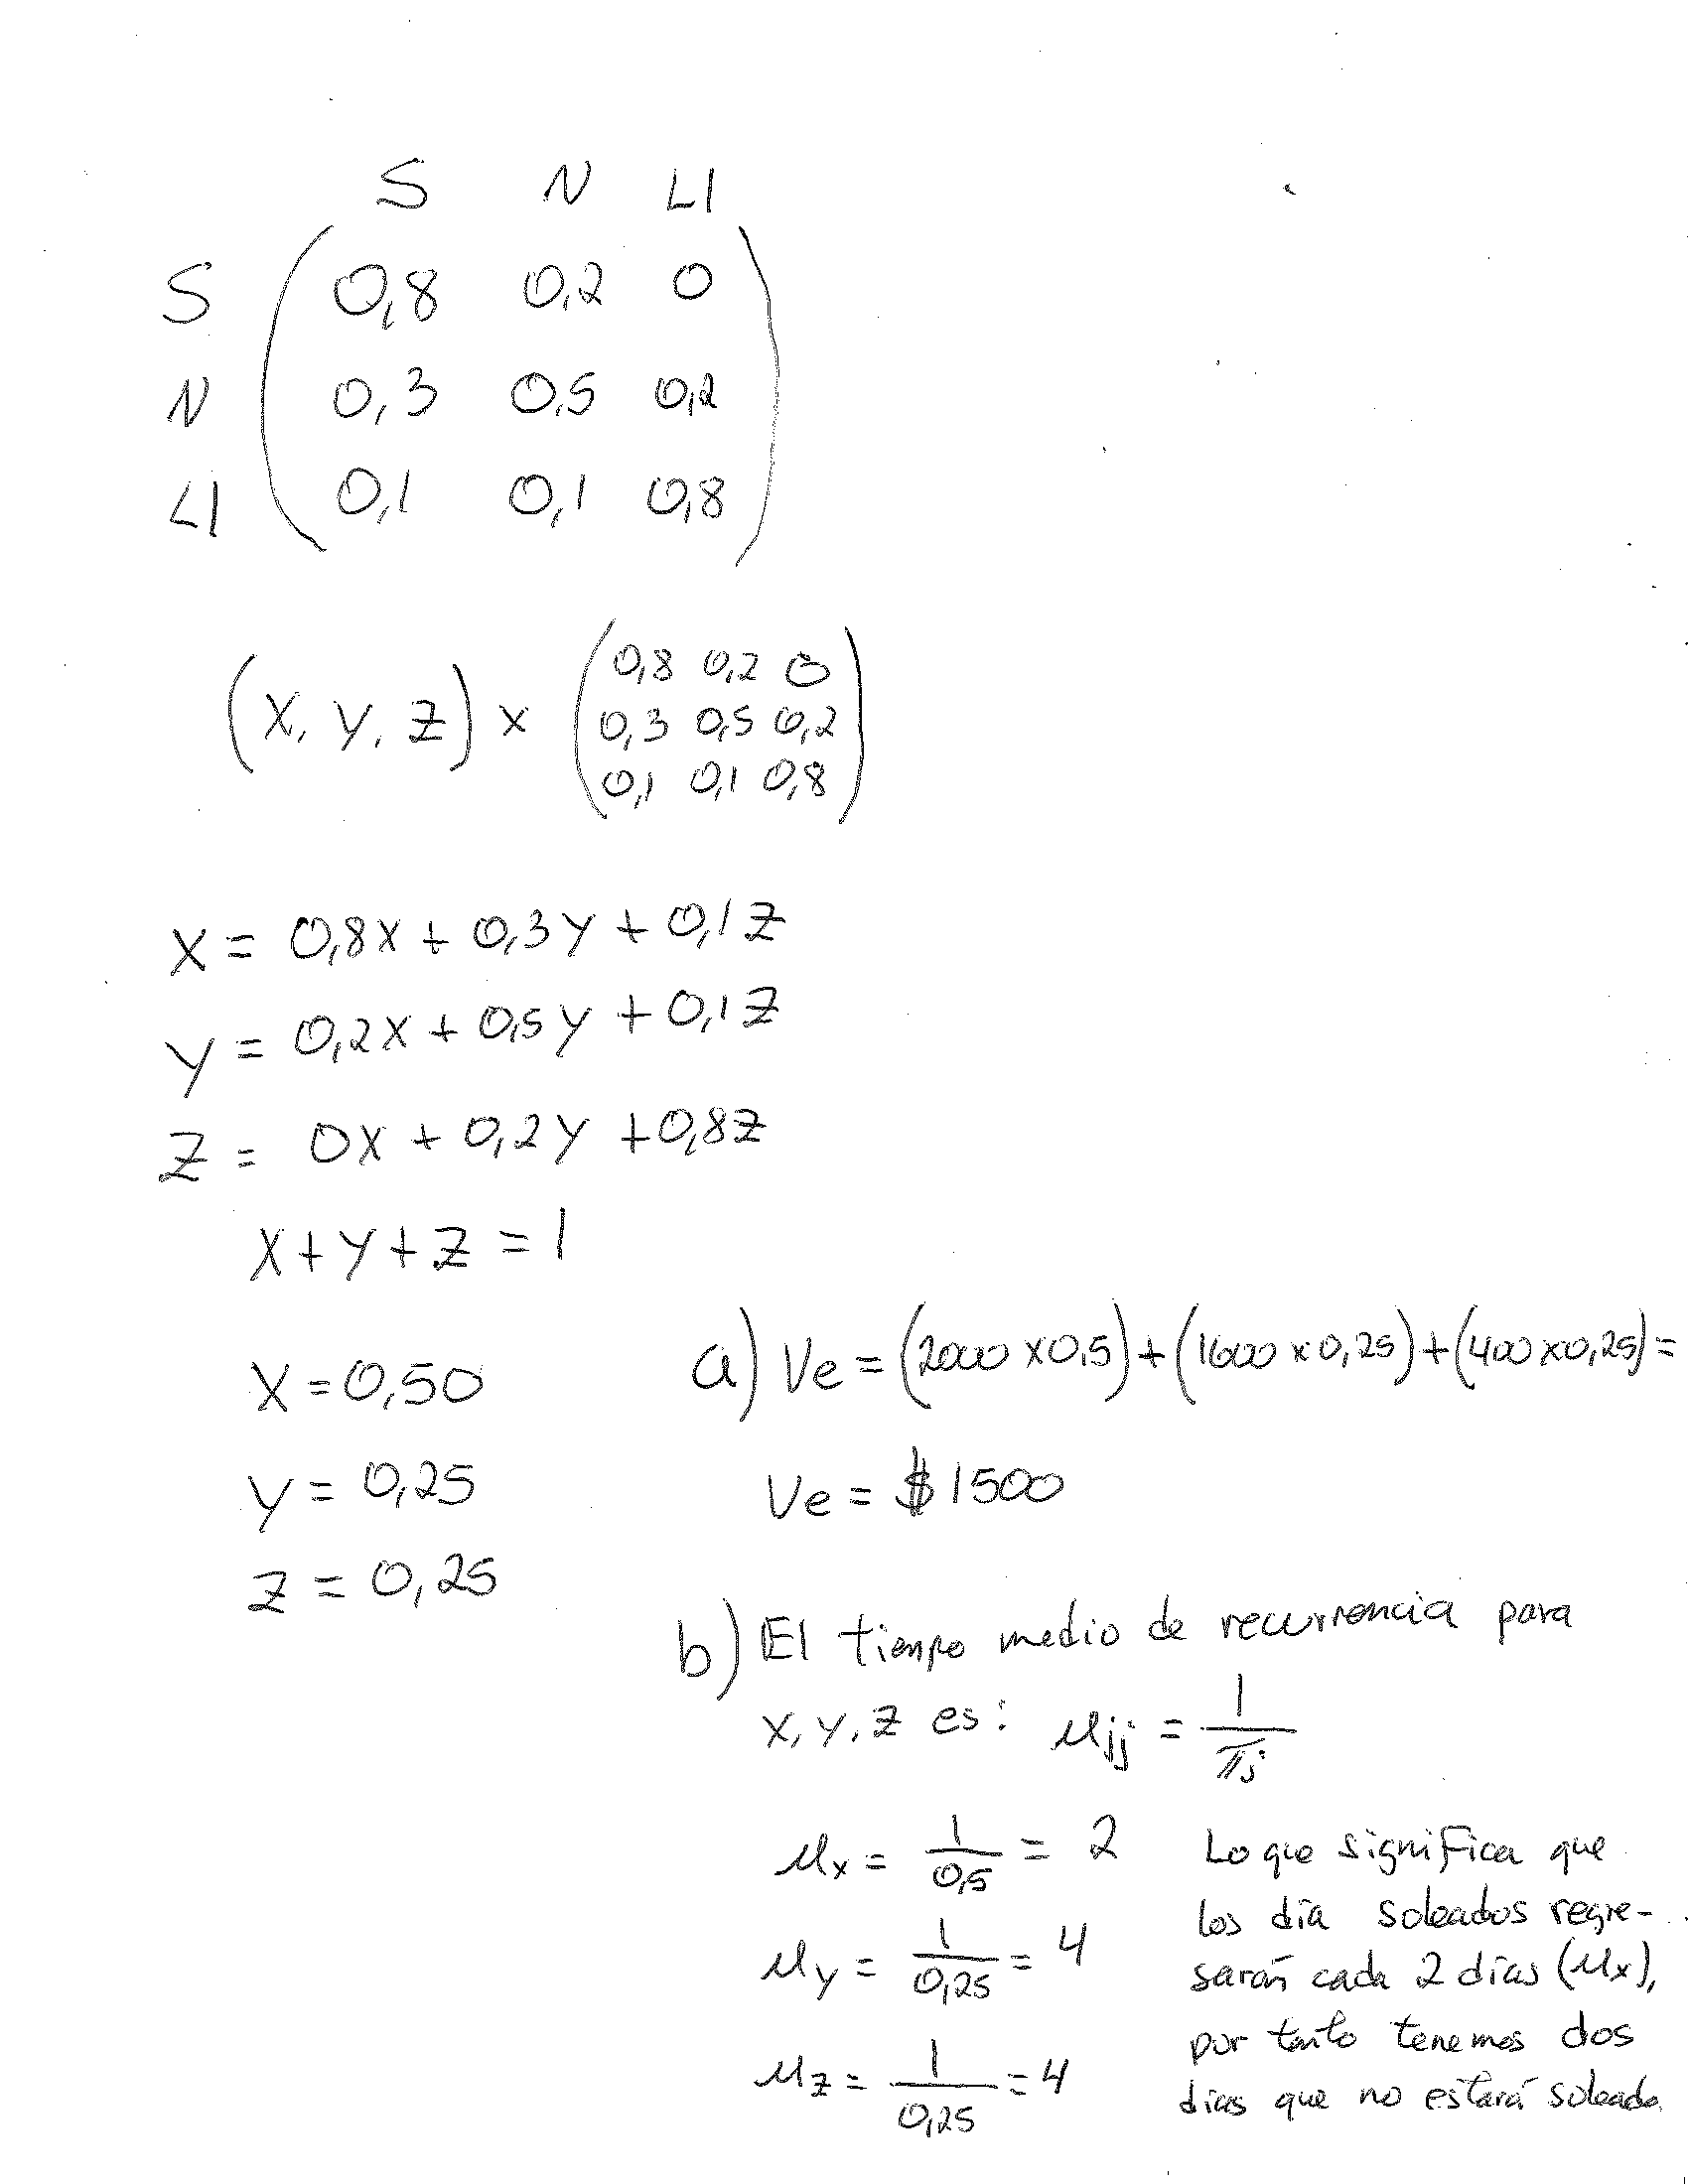 S N Ll
S 0,8 0,2 0
N 0,3 0,5 0,2
Ll 0,1 0,1 0,8
(X, Y, Z) x (0,8 0,2 0
0,3 0,5 0,2
0,1 0,1 0,8)
X = 0,8X + 0,3Y + 0,1Z
Y = 0,2X + 0,5Y + 0,1Z
Z = 0X + 0,2Y + 0,8Z
X + Y + Z = 1
X = 0,50
Y = 0,25
Z = 0,25
a) Ve = (2000 x 0,5) + (1600 x 0,25) + (400 x 0,25) =
Ve = $1500
b) El tiempo medio de recurrencia para
X, Y, Z es: μjj = 1/πj
μx = 1/0,5 = 2
μy = 1/0,25 = 4
μz = 1/0,25 = 4
Lo que significa que
los día soleados regre-
sarán cada 2 días (μx),
por tanto tenemos dos
días que no estará soleado.